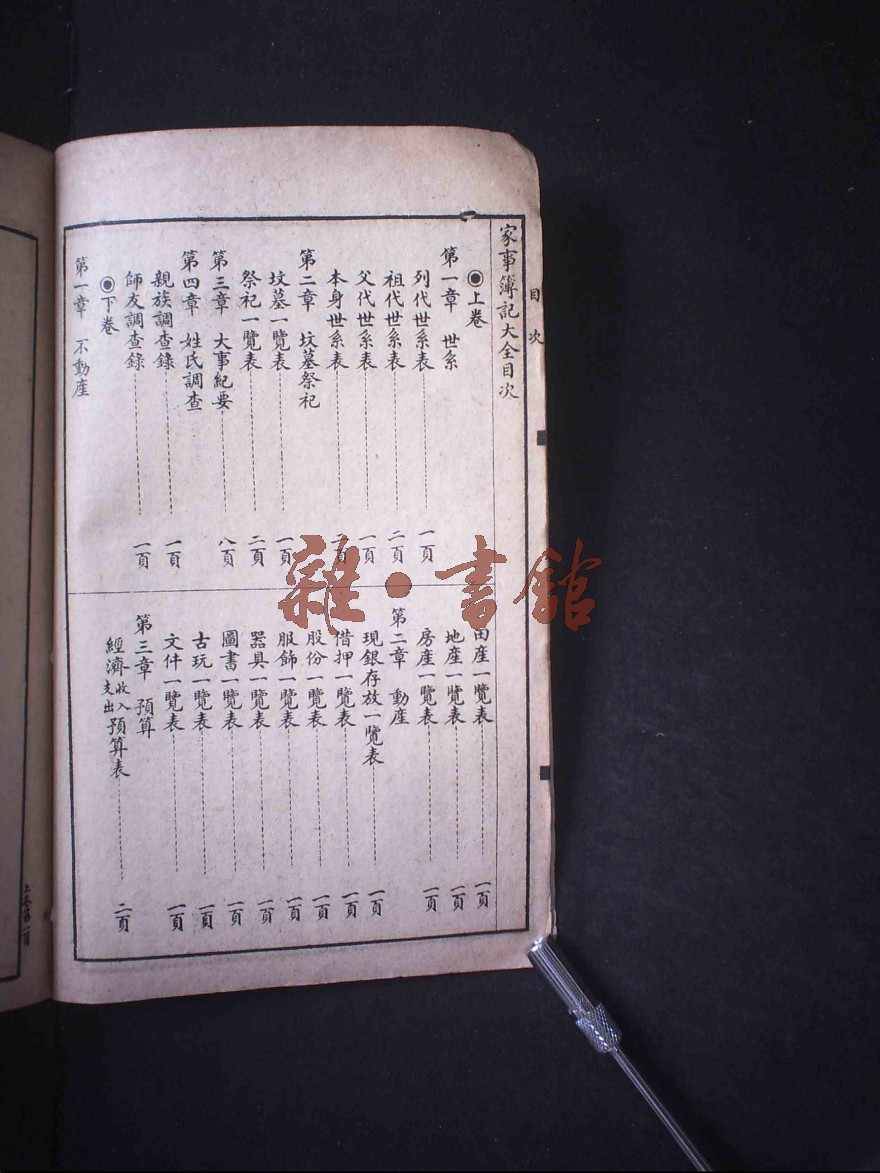 目次
家事簿記大全目次
◉上卷
第一章 世系
列代世系表 一頁
祖代世系表 二頁
父代世系表 一頁
本身世系表
第二章 坟墓祭祀
坟墓一覽表 一頁
祭祀一覽表 二頁
第三章 大事紀要 八頁
第四章 姓氏調查
親族調查錄 一頁
師友調查錄 一頁
◉下卷
第一章 不動產
田產一覽表 一頁
地產一覽表 一頁
房產一覽表 一頁
第二章 動產
現銀存放一覽表 一頁
借押一覽表 一頁
股份一覽表 一頁
服飾一覽表 一頁
器具一覽表 一頁
圖書一覽表 一頁
古玩一覽表 一頁
文件一覽表 一頁
第三章 預算
經濟收入支出預算表 二頁
上卷第一頁
雜·書館